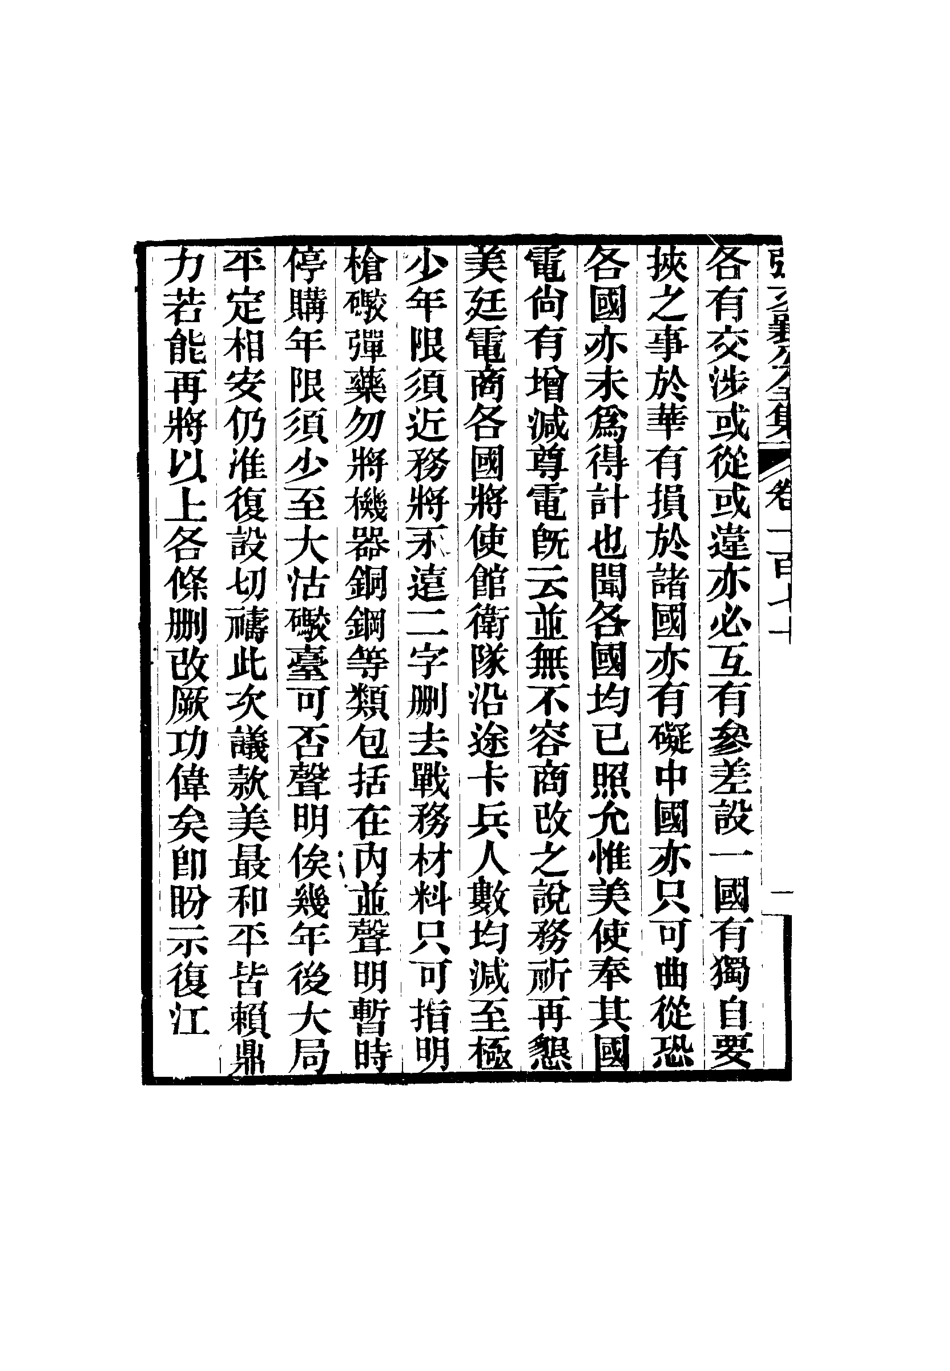 張文襄公全集 卷一百七十 一
各有交涉或從或違亦必互有參差設一國有獨自要
挾之事於華有損於諸國亦有礙中國亦只可曲從恐
各國亦未爲得計也聞各國均已照允惟美使奉其國
電尙有增減尊電旣云並無不容商改之說務祈再懇
美廷電商各國將使館衛隊沿途卡兵人數均減至極
少年限須近務將永遠二字刪去戰務材料只可指明
槍礮彈藥勿將機器銅鋼等類包括在內並聲明暫時
停購年限須少至大沽礮臺可否聲明俟幾年後大局
平定相安仍准復設切禱此次議款美最和平皆賴鼎
力若能再將以上各條刪改厥功偉矣卽盼示復江